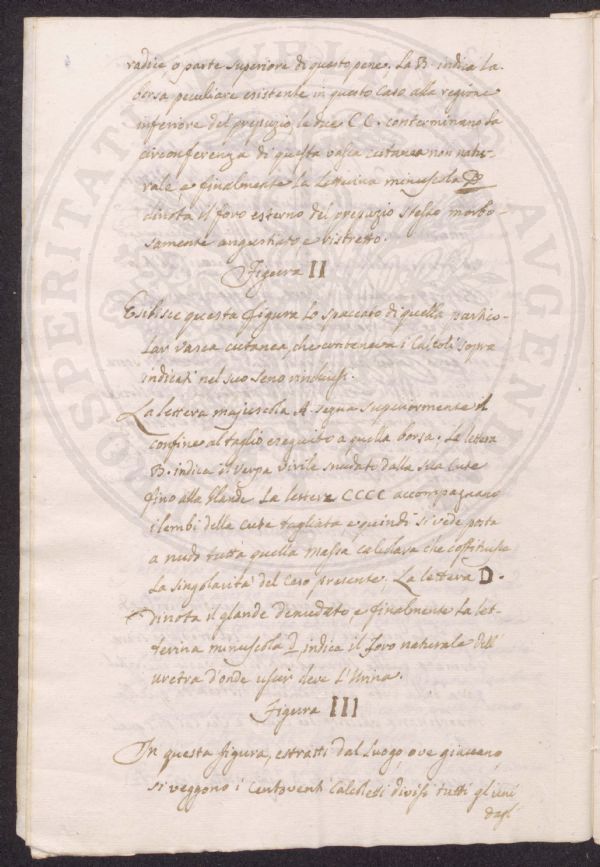 radice, o parte superiore di questo pene, La B. indica la
borsa peculiare esistente in questo Caso alla regione
inferiore del prepuzio, le due C C. conterminano la
circonferenza di questa vasca cutanea non natu-
rale, e finalmente la Letterina minuscola D
dinota il foro esterno del prepuzio stesso morbo-
samente angustiato e ristretto.
Figura II
Esibisce questa figura lo spaccato di quella partico-
lar vasca cutanea, che conteneva i Calcoli sopra
indicati nel suo seno rinchiusi.
La lettera majuscola A. segna superiormente il
confine al taglio eseguito a quella borsa. La lettera
B. indica il Verpa Virile snudato dalla sua Cute
fino alla Glande. La lettere CCCC accompagnano
i lembi della Cute tagliata e quindi si vede posta
a nudo tutta quella massa calcolosa che costituisce
la singolarità del Caso presente, La lettera D.
Dinota il glande denudato, e finalmente la let-
terina minuscola D indica il foro naturale dell'
uretra d'onde uscir deve L'Urina.
Figura III
In questa figura, estratti dal Luogo, ove giaceano,
si veggono i Centoventi Calcoletti divisi tutti gli uni
dagl'
PROSPERITATI PUBLICAE AUGENDAE